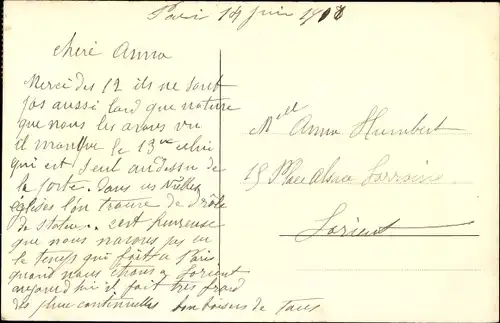 Paris 14 juin 1908
Cheri Anna
Merci des 12 ils ne sont
pas aussi laid que nature
que nous les avons vu
il manque le 13me celui
qui est seul au dessu de
la porte. dans ces vielles
églises l'on trouve de drôle
de statues. c'est heureuse
que nous navons pas eu
le temps qui fait a Paris
quand nous étions a Lorient
aujourd'hui il fait très froid
des pluie continuelles bon baisers de tous
Melle Anna Humbert
15 Place Alsace Lorraine
Lorient